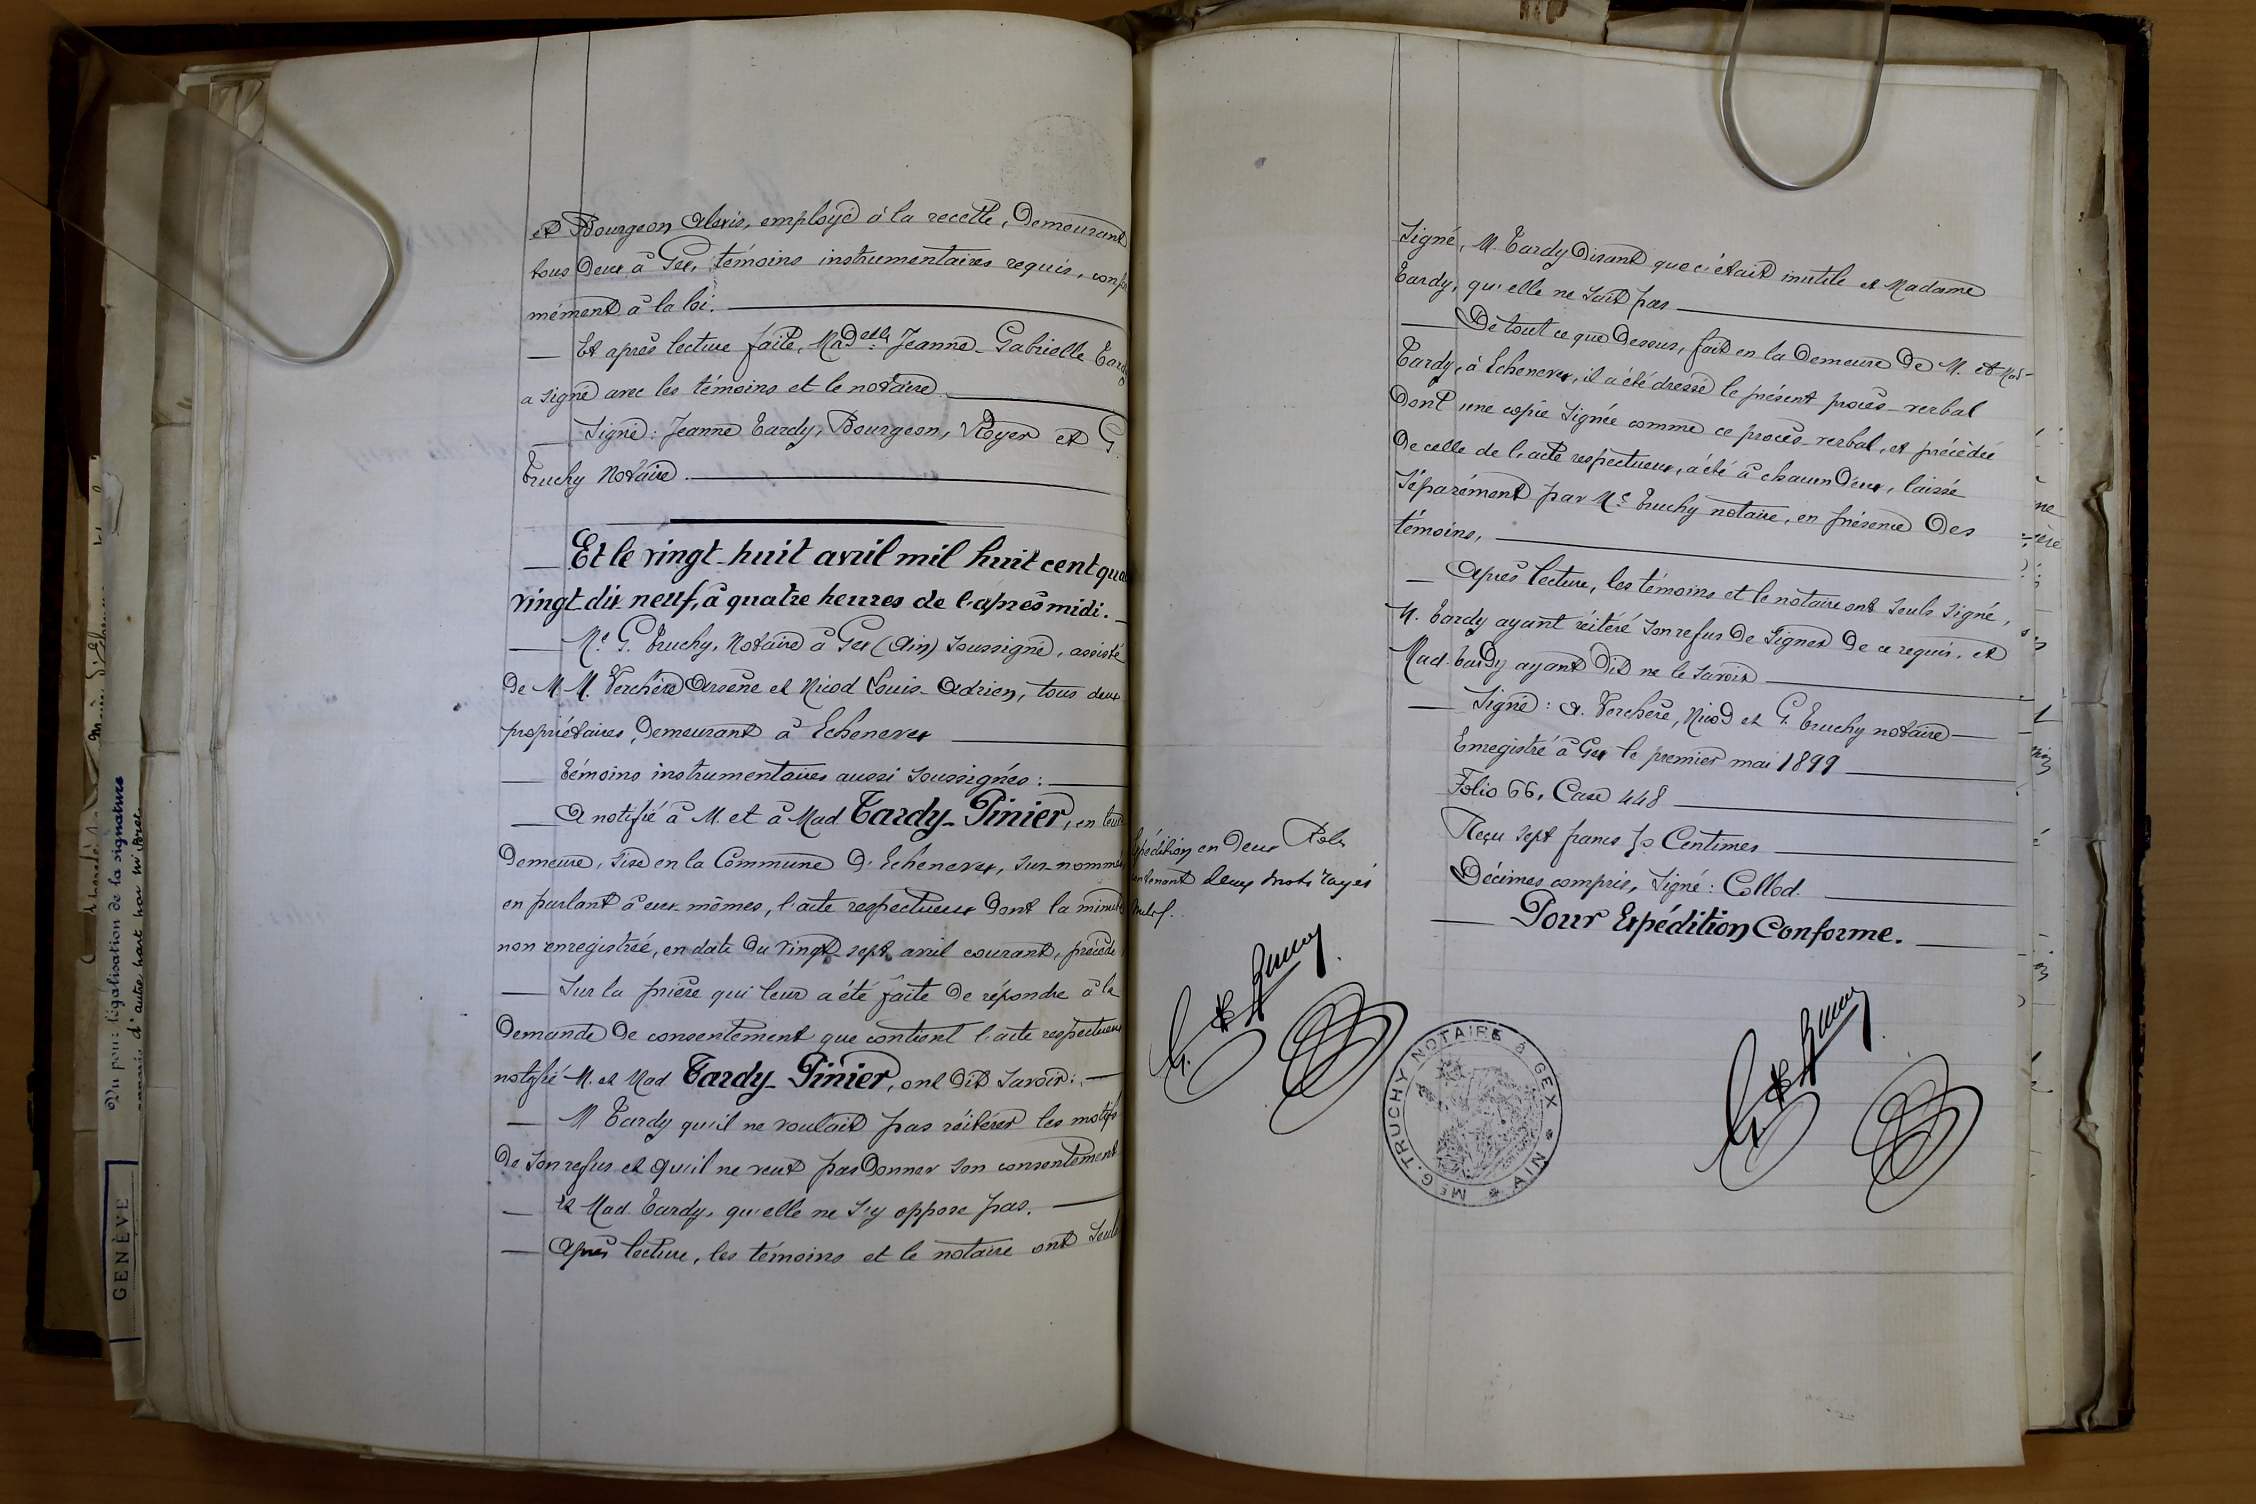 et Bourgeon Alexis, employé à la recette, Demeurant
tous Deux à Gex, témoins instrumentaires requis, confor
mément à la loi.
— Et après lecture faite, Mad.elle Jeanne-Gabrielle Tardy
a signé avec les témoins et le notaire.
— Signé: Jeanne Tardy, Bourgeon, Royer et G.
Truchy Notaire.
— Et le vingt-huit avril mil huit cent qua
vingt dix neuf, à quatre heures de l'après midi. —
— Me G. Truchy, Notaire à Gex (Ain) soussigné, assisté
De M.M. Verchère Arsène et Nicod Louis-Adrien, tous deux
propriétaires, Demeurant à Echenevex
— témoins instrumentaires aussi soussignés:
— A notifié à M. et à Mad Tardy-Pinier, en leur
Demeure, sise en la Commune d'Echenevex, sus-nommés
en parlant à eux-mêmes, l'acte respectueux Dont la minute
non enregistrée, en date du vingt-sept avril courant, précède
— Sur la prière qui leur a été faite De répondre à la
Demande De consentement que contient l'acte respectueux
notifié M. et Mad Tardy-Pinier, ont Dit savoir: —
— M Tardy qu'il ne voulait pas réitérer les motifs
De son refus et qu'il ne veut pas Donner son consentement
— et Mad. Tardy, qu'elle ne s'y oppose pas. —
— Après lecture, les témoins et le notaire ont seuls
Signé, M. Tardy Disant que c'était inutile et Madame
Tardy, qu'elle ne sait pas
— De tout ce que Dessus, fait en la Demeure De M. et Mad-
Tardy, à Echenevex, il a été dressé le présent procès-verbal
Dont une copie signée comme ce procès-verbal, et précédée
De celle de l'acte respectueux, a été à chacun D'eux, laissée
séparément par Me Truchy notaire, en présence Des
témoins,
— Après lecture, les témoins et le notaire ont seuls signé,
M. Tardy ayant réitéré son refus De signer De ce requis, et
Mad. Tardy ayant Dit ne le savoir
— Signé: A. Verchère, Nicod et G. Truchy notaire —
Enregistré à Gex le premier mai 1899
Folio 66, Case 448
Reçu sept francs 50 Centimes
Décimes compris, Signé: Collod.
— Pour Expédition Conforme. —
Expédition en Deux Rôles
contenant deux mots rayés
nuls.
ME G. TRUCHY NOTAIRE à GEX * AIN *
Vu pour légalisation de la signature
GENÈVE